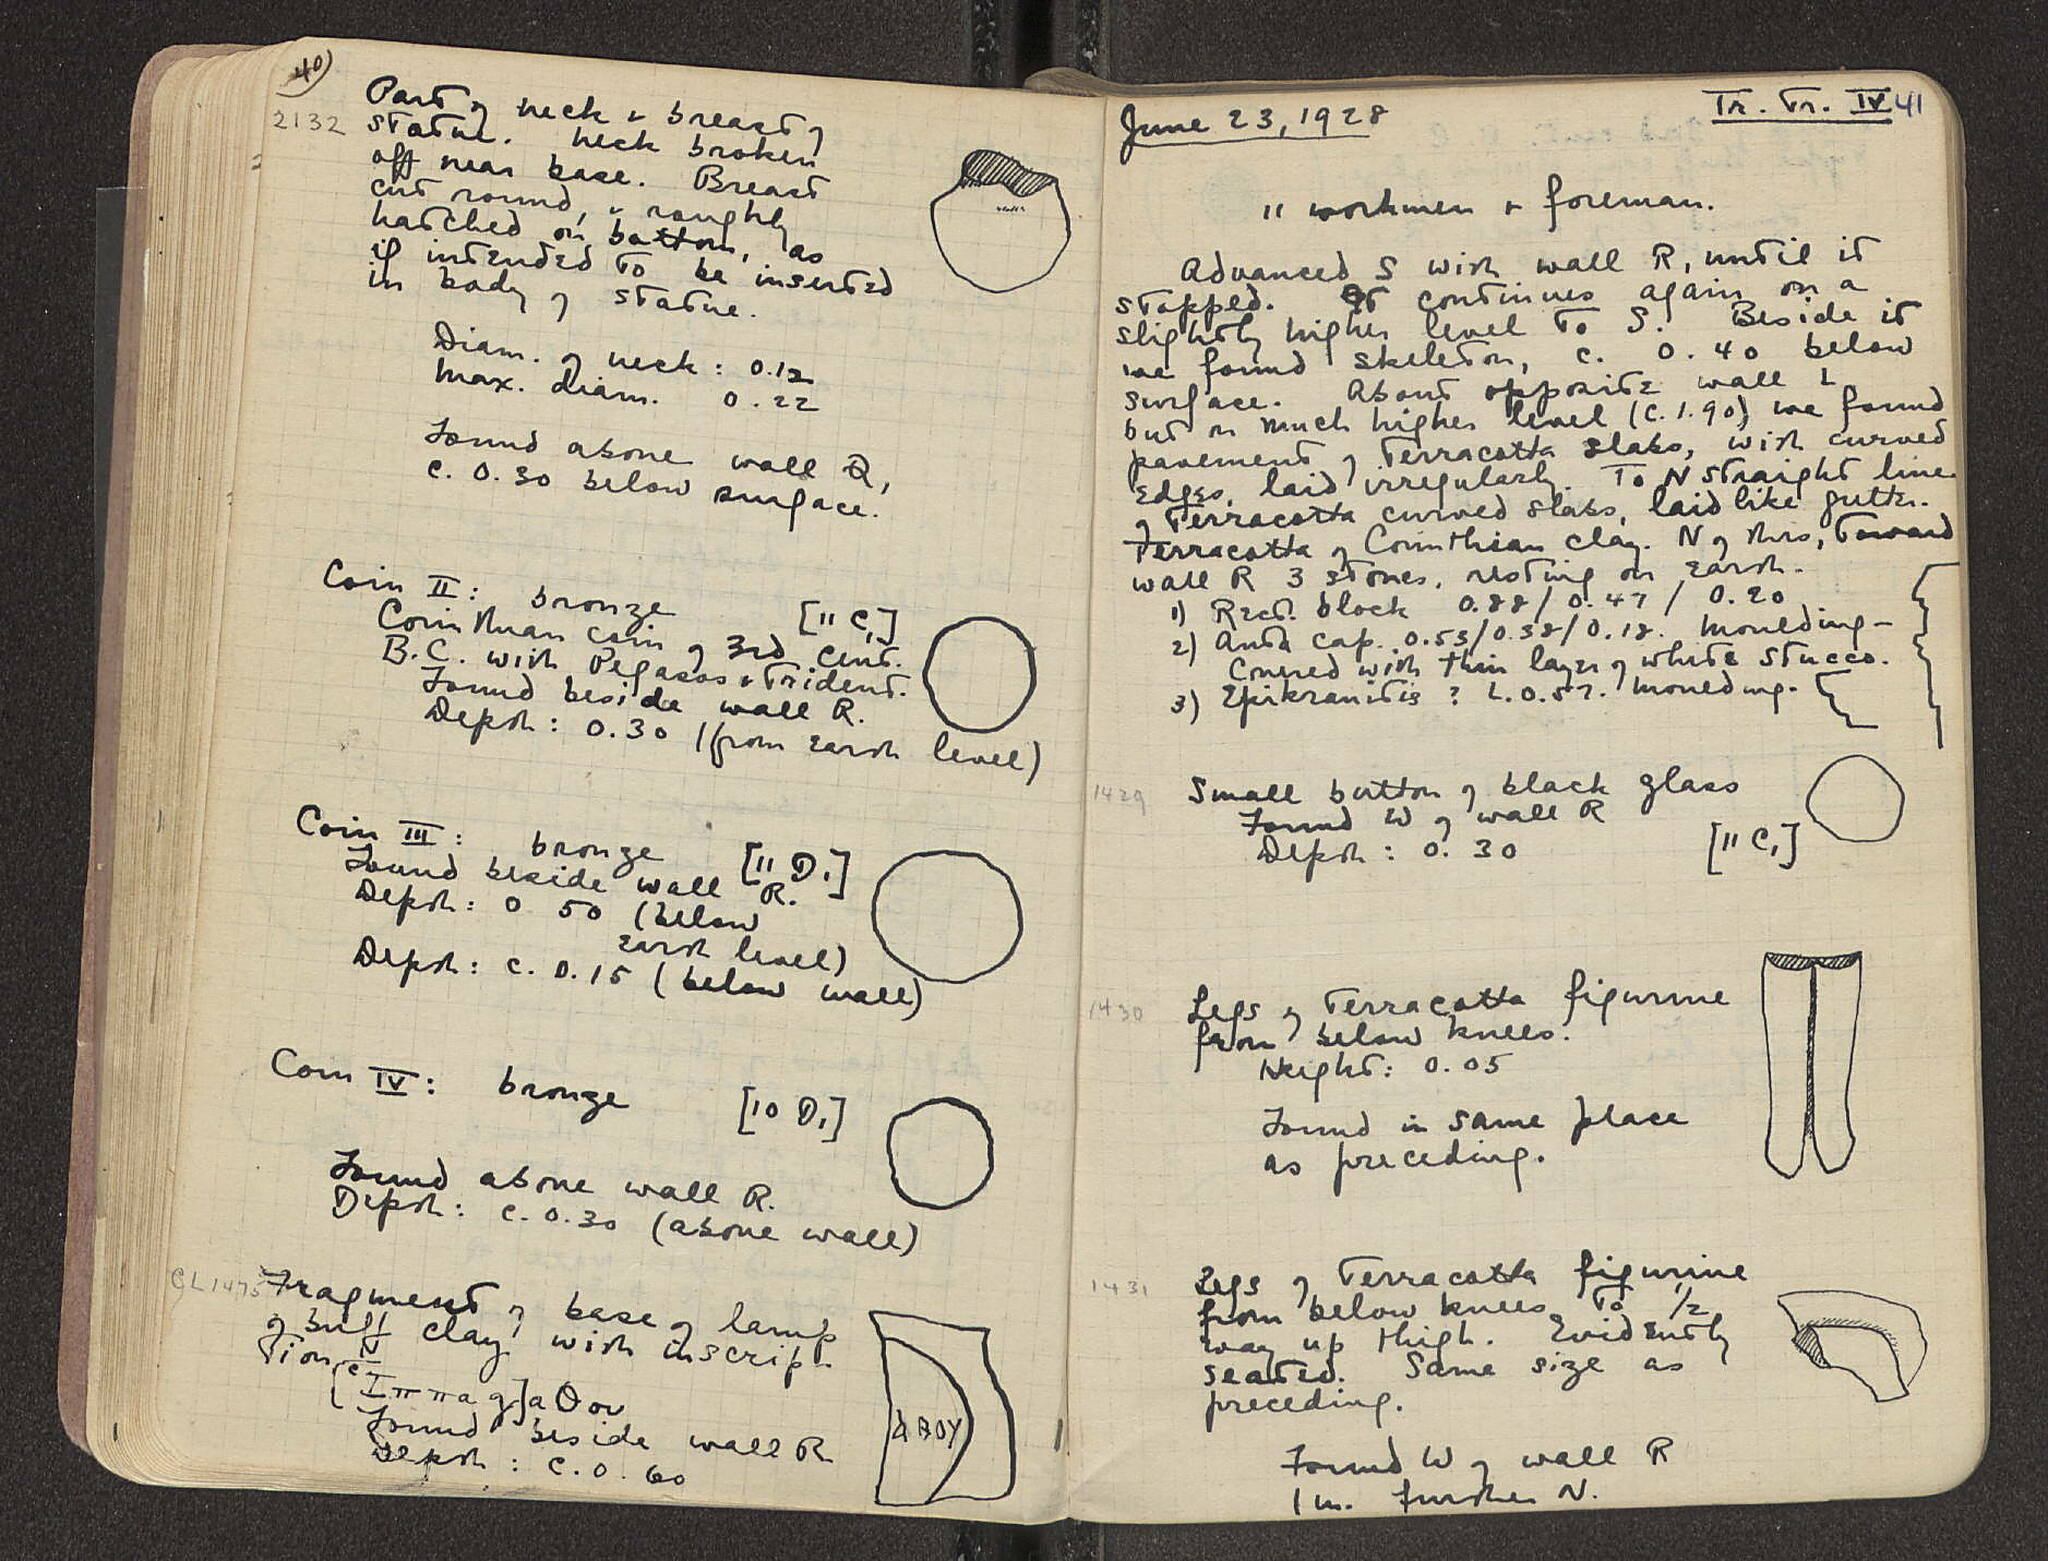 40
2132
Part of neck & breast of
statue. Neck broken
off near base. Breast
cut round, & roughly
hatched on bottom, as
if intended to be inserted
in body of statue.
Diam. of neck: 0.12
Max. diam. 0.22
Found above wall R,
c. 0.30 below surface.
Coin II: bronze [11 C,]
Corinthian coin of 3rd cent.
B.C. with Pegasos & Trident.
Found beside wall R.
Depth: 0.30 (from earth level)
Coin III: bronze [11 D,]
Found beside wall R.
Depth: 0 50 (below
earth level)
Depth: c. 0.15 (below wall)
Coin IV: bronze [10 D,]
Found above wall R.
Depth: c. 0.30 (above wall)
CL 1475
Fragment of base of lamp
of buff clay, with inscrip-
tion
αθου
Found beside wall R
Depth: c. 0.60
June 23, 1928
Tr. Tr. IV 41
11 workmen & foreman.
Advanced S with wall R, until it
stopped. It continues again on a
slightly higher level to S. Beside it
we found skeleton, c. 0.40 below
surface. About opposite wall L
but on much higher level (c. 1.90) we found
pavement of terracotta slabs, with curved
edges, laid irregularly. To N straight line
of terracotta curved slabs, laid like gutter.
Terracotta of Corinthian clay. N of this, toward
wall R 3 stones, resting on earth.
1) Rect. block 0.88/0.47/0.20
2) Anta cap. 0.53/0.38/0.18. Moulding-
Covered with thin layer of white stucco.
3) Epikranitis? L. 0.57. Moulding.
1429
Small button of black glass
Found W of wall R
Depth: 0.30 [11 C,]
1430
Legs of terracotta figurine
from below knees.
Height: 0.05
Found in same place
as preceding.
1431
Legs of terracotta figurine
from below knees to 1/2
way up thigh. Evidently
seated. Same size as
preceding.
Found W of wall R
1 m. further N.